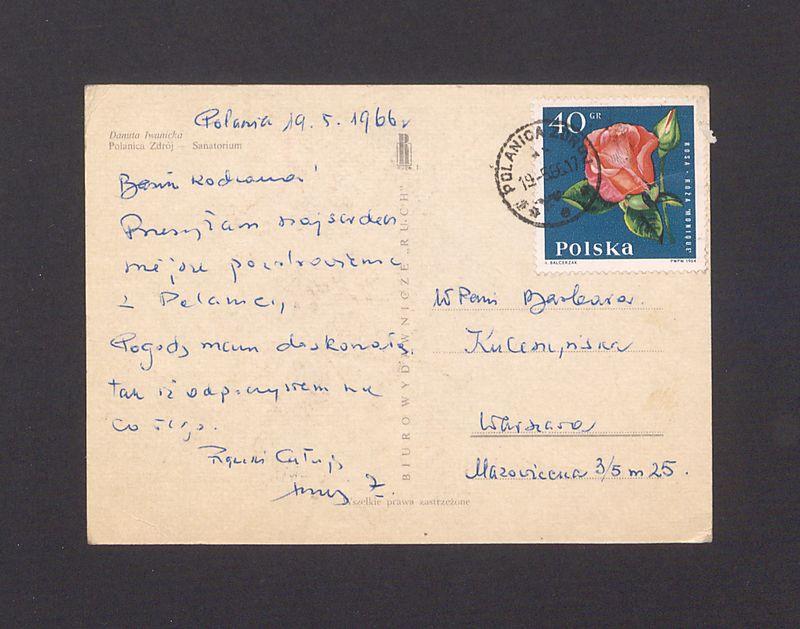 Polanica 19.5.1966r
Danuta Iwanicka
Polanica Zdrój — Sanatorium
Basiu kochana!
Przesyłam najserdecz
niejsze pozdrowienia
z Polanicy,
Pogodę mam doskonałą.
tak iż odpoczywam na
całego.
Rączki Całuję
Z.
BIURO WYDAWNICZE „RUCH"
Wszelkie prawa zastrzeżone
40 GR
ROSA - RÓŻA 'MONIQUE'
Polska
J. BALCERZAK
PWPW 1964
POLANICA ZDRÓJ
19-5.66.17
WPani Barbara
Kuleszyńska
Warszawa
Mazowiecka 3/5 m 25.